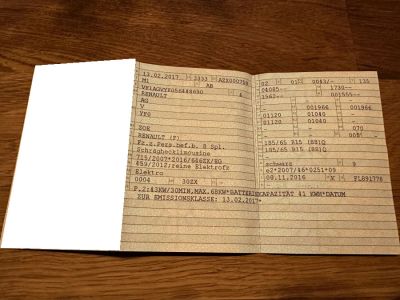 13.02.2017 3333 AZX000758
M1 AB
VF1AGVYF056448630 A
RENAULT
AG
V
YF0
ZOE
RENAULT (F)
Fz.z.Pers.bef.b. 8 Spl.
Schräghecklimousine
715/2007*2016/646ZX/EG
459/2012/reine Elektrofk
Elektro
0004 30ZX -
P.2:43KW/30MIN,MAX.68KW*BATTERIEKAPAZITÄT 41 KWH*DATUM
ZUR EMISSIONSKLASSE: 13.02.2017*
02 01 0043/- 135
04085-- 1730--
1562-- 001555--
- -
- 001966 001966
01120 01040 -
01120 01040 -
- - 070
- -
185/65 R15 (88)Q
185/65 R15 (88)Q
-
schwarz 9
e2*2007/46*0251*09
08.11.2016 K FL891778